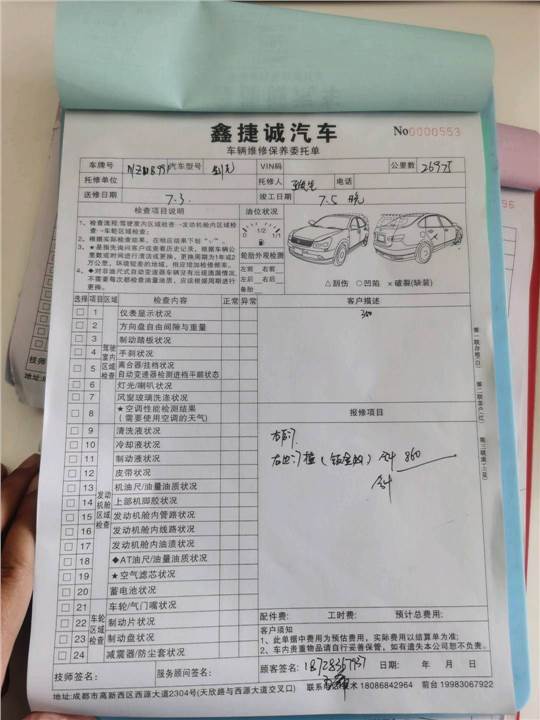 鑫捷诚汽车
No0000553
车辆维修保养委托单
车牌号 汽车型号 VIN码 公里数
托修单位 托修人 电话
送修日期 7.3. 竣工日期 7.5
检查项目说明 油位状况
1、检查流程:驾驶室内区域检查→发动机舱内区域检查→车轮区域检查;
2、根据实际检查结果,在相应结果下划"√"。
3、★是指先询问客户或查看历史记录,根据车辆公里数或时间进行清洁或更换,更换周期为1年或2万公里,环境较差的地域,相应增加检修频率。
4、◆对非油尺式自动变速器车辆没有出现渗漏情况,不需要每次都检查油量油质,应该根据周期进行更换。
1/2
轮胎外观检测
左前 右前
左后 右后
备胎
△刮伤 ○凹陷 ×破裂(缺装)
选择 项目 区域 检查内容 正常 异常 客户描述
驾驶室内区域检查
1 仪表显示状况
2 方向盘自由间隙与重量
3 制动踏板状况
4 手刹状况
5 离合器/挂档状况
自动变速器检测进档平顺状态
6 灯光/喇叭状况
7 风窗玻璃洗涤状况
8 ★空调性能检测结果
(需要使用空调的天气)
报修项目
发动机舱区域检查
9 清洗液状况
10 冷却液状况
11 制动液状况
12 皮带状况
13 机油尺/油量油质状况
14 上部机脚胶状况
15 发动机舱内管路状况
16 发动机舱内线路状况
17 发动机舱内油渍状况
18 ◆AT油尺/油量油质状况
19 ★空气滤芯状况
20 蓄电池状况
车轮区域检查
21 车轮/气门嘴状况
22 制动片状况
23 制动盘状况
24 减震器/防尘套状况
860
配件费: 工时费: 预计总费用:
客户须知
1、此单据中费用为预估费用,实际费用以结算单为准;
2、车内贵重物品请自行妥善保管,如有遗失本公司恕不负责。
技师签名: 服务顾问签名: 顾客签名: 日期: 年 月 日
地址:成都市高新西区西源大道2304号(天欣路与西源大道交叉口) 联系电话:技术 18086842964 前台 19983067922